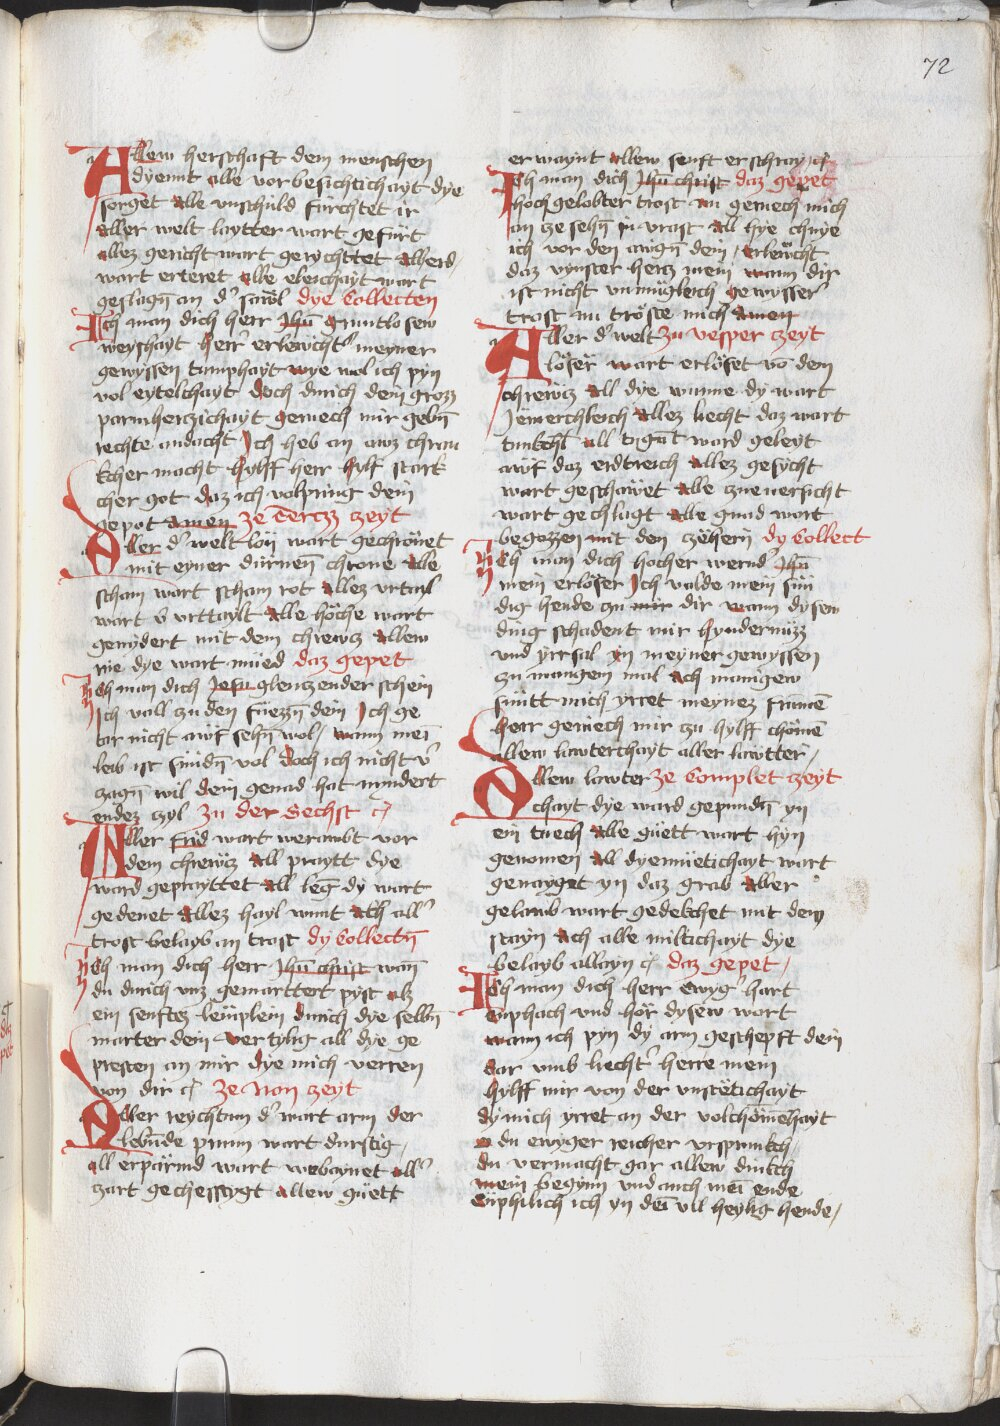 72
Allew herschaft dem menschen
dyennt alle vorbesichtichayt dye
sorget alle vnschuld fürchtet ir
aller welt laytter wart gefürt
allez gericht wart gerychttet allerd
wart erteret alle eleichayt wart
geslagn̄ an d' sawl dye Collecten
Ich man dich herr Jhū gruntlosew
weyshayt herr erlewicht' meyner
gewyssen tumphayt wye wol ich pyn
vol eytelchayt doch durich dein grozz
parmherczichayt geruech mir gebn̄
rechte andacht Ich heb an awz chran
kcher macht hylff herr hylf stark
cher got daz ich volpring dein
gepot amen Ze Terczz czeyt
Aller d' welt lon wart gechrönet
mit eyner dürnen̄ chrone alle
scham wart scham rot allez vrtail
wart v̄ vrttaylt alle höche wart
genydert mit dem chrewcz allew
rue dye wart mued daz gepet
Ich man dich Jesu glenczender schein
Ich vall zu den füezzn̄ dein Ich ge
tar nicht awf sehn̄ wol wann mei̅
leib ist sündn̄ vol doch ich nicht v'
zagn̄ wil dein genad hat nyndert
endez czyl Zu der Sechsst
Aller frid wart verawbt vor
dem chrewcz all praytt dye
ward geprayttet all leng dy wart
gedenet allez hayl wunt ach all'
trost belayb an trost dy Collectn̄
Ich man dich herr Jhū christ wan̄
du durich vnz gemarttert pyst alz
ein senftez lemplein durich dye selbn̄
marter dein vertylig all dye ge
presten an mir dye mich verren
von dir Ze Non czeyt
Aller reychtum d' wart arm der
lebn̄de prunn wart durstig
all erpärmd wart webaynet all'
zart gechesstygt allew güett
erwaynt allew senft erschray
Ich man dich Jhū christ daz gepet
hochgelobter trost nu geruech mich
an ze sehn̄ in vrast all hye chnye
ich vor den awgn̄ dein erlewcht
daz vynster hercz mein wann dir
ist nicht vnmügleich gewysser
trost nu tröste mich Amen
Aller d' welt Zu vesper czeyt
löser wart erlöset vō dem
chrewcz all dye wunne dy wart
Jemerchleich allez liecht daz wart
tunkchel all tugnt ward geleyt
awf daz erdtreich allez gesycht
wart geschawet alle zueversicht
wart gechlagt alle gnad wart
begozzen mit den czehern dy Collect
Ich man dich hocher wernd' Jhū
mein erlöser Ich valde mein sün
dig hende zu mir dir wann dysew
ding schadent mir hyndernüzz
vnd yrrsal yn meyner gewyssen
zu mangem mal Ach manigew
sünt mich yrret meynez frumē
herr geruech mir zu hylff chömē
allew lawterchayt aller lawtter
Allew lawter Ze Complet czeyt
chayt dye ward gepundn̄ yn
ein tuech alle güett wart hyn
genomen all dyemüetichayt wart
genayget yn daz grab Aller
gelaub wart gedekchet mit dem
stayn Ach alle miltichayt dye
belayb allayn daz gepet
Ich man dich herr ewyg hart
emphach vnd hör dysew wart
wann ich pyn dy arm geschepft dein
dar vmb liecht' herre mein
hylff mir von der vnstetichayt
dy mich yrret an der volchömēhayt
o du ewyger reicher vrsprunkch
du vermacht gar allew dinkch
mein begynn vnd auch mei̅ ende
Emphilich ich yn dei̅ vil heylig hende